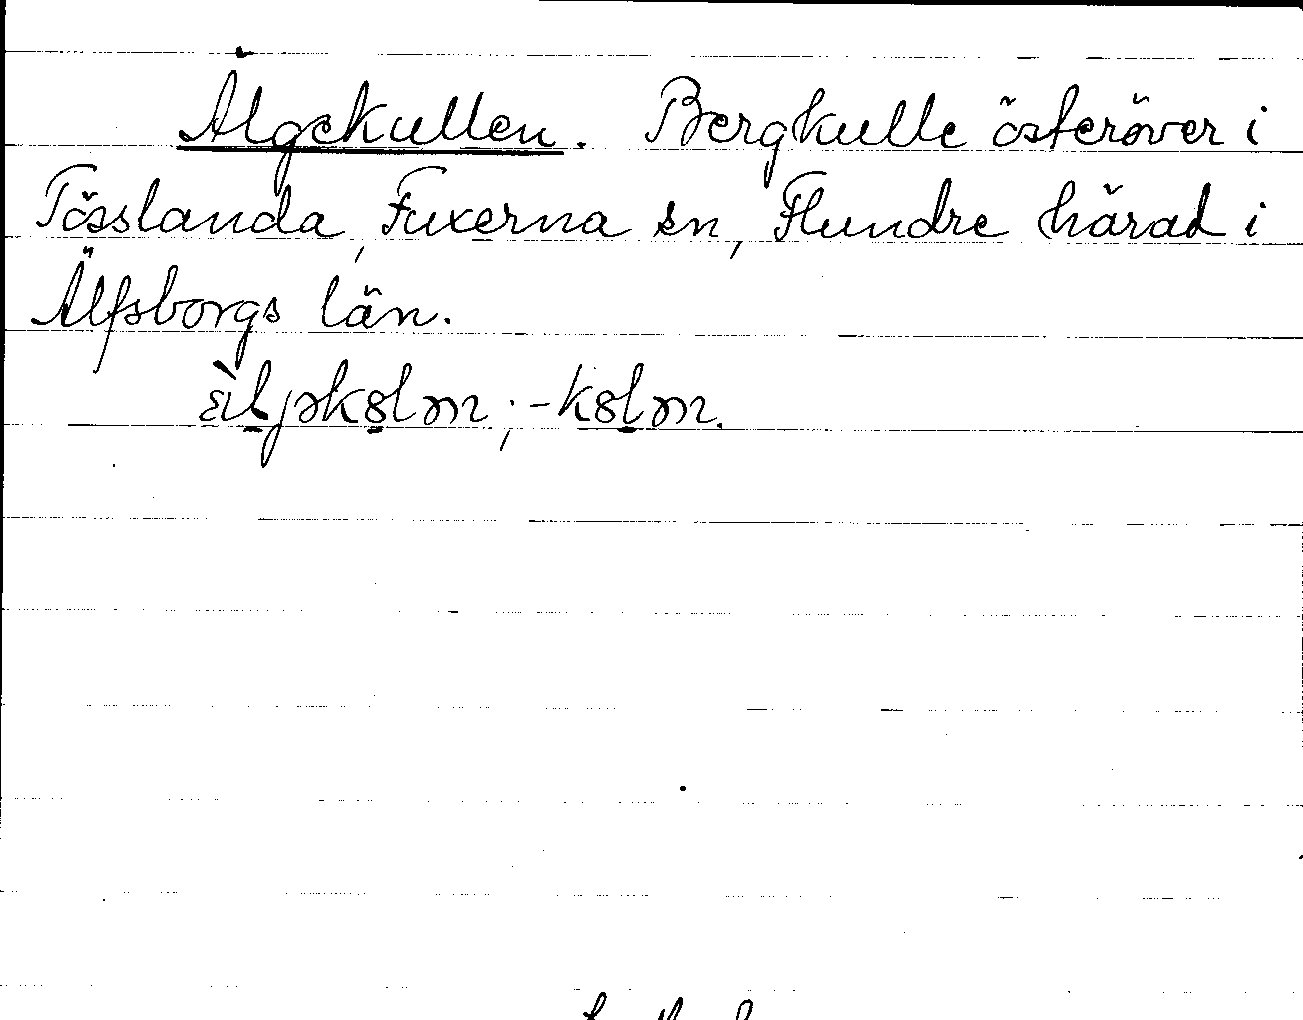 Älgekullen. Bergkulle österöver i
Tösslanda, Fuxerna sn, Flundre härad i
Älfsborgs län.